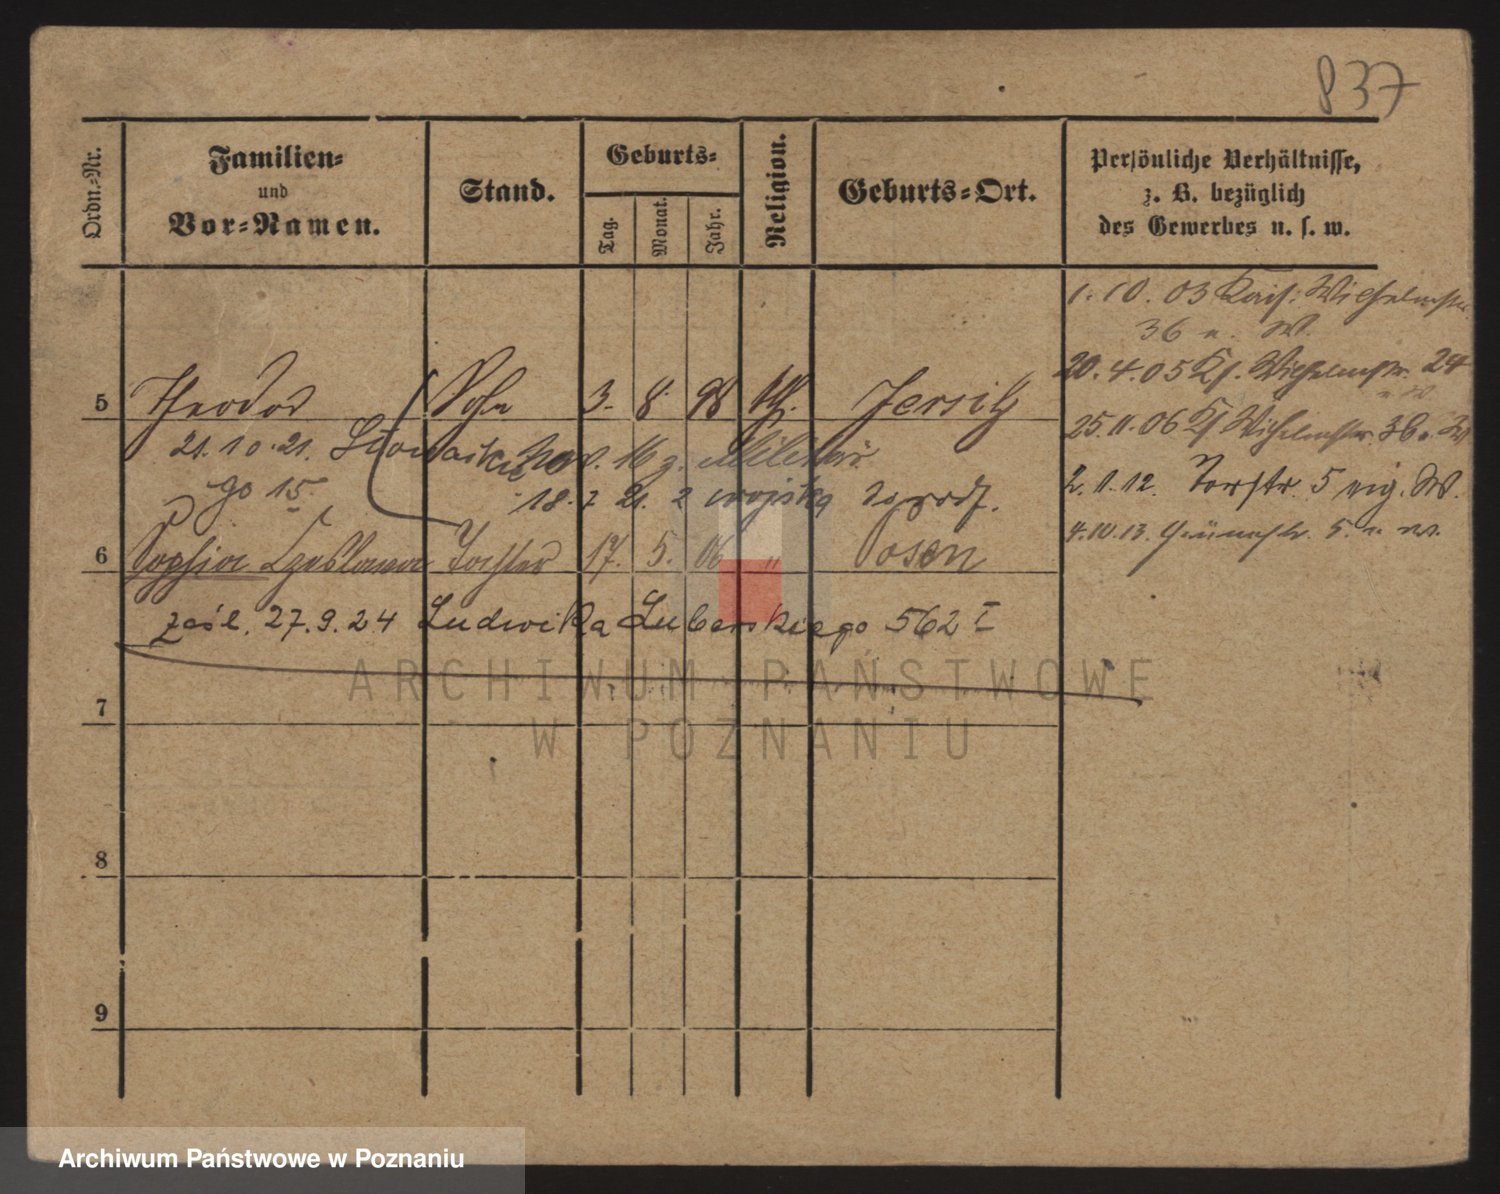 837
Ordn.-Nr.
Familien-
und
Vor-Namen.
Stand.
Geburts-
Tag.
Monat.
Jahr.
Religion.
Geburts-Ort.
Persönliche Verhältnisse,
z. B. bezüglich
des Gewerbes u. s. w.
1.10.03 Kais: Wilhelmstr.
36 u. W.
20.4.05 Ks. Wilhelmstr. 24
u W.
25.11.06 Ks Wilhelmstr. 36 u. W
2.1.12. Torstr. 5 eig. W.
4.10.13. Grünestr. 5. u. W.
5 Theodor Sohn 3. 8. 98 kth. Jersitz
21.10.21. Słowackie
go 15
Nov. 16 z. Militär
18.7 21. z wojska
6 Sophia Czeslawa Tochter 17. 5. 06 " Posen
zaśl. 27.9.24 Ludwika Luberskiego 562 I
7
8
9
ARCHIWUM PAŃSTWOWE
W POZNANIU
Archiwum Państwowe w Poznaniu